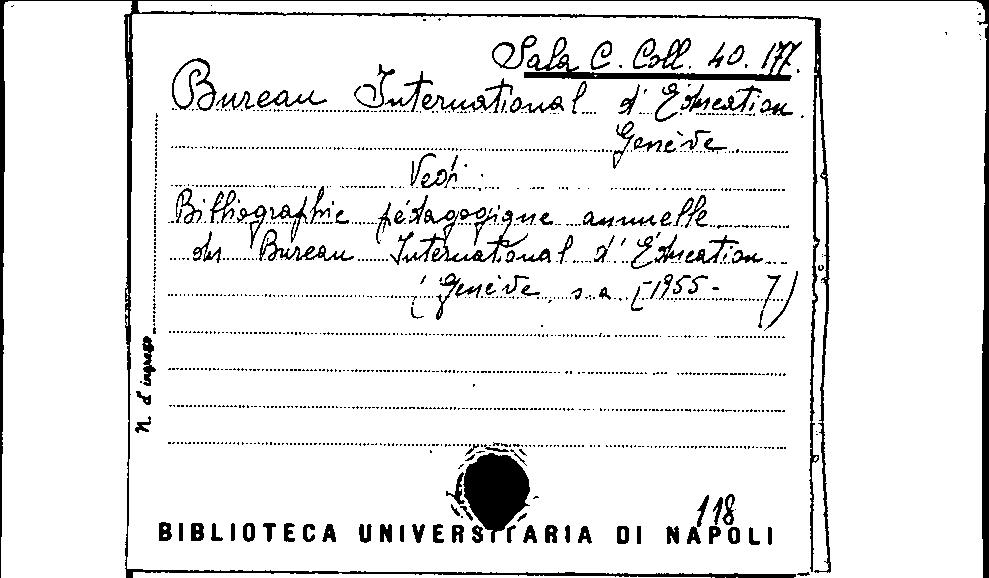 Sala C. Coll. 40. 177.
Bureau International d'Éducation.
Genève.
Vedi:
Bibliographie pédagogique annuelle
du Bureau International d'Éducation
(Genève, s. a. [1955- ])
N. d'ingresso
118
BIBLIOTECA UNIVERSITARIA DI NAPOLI